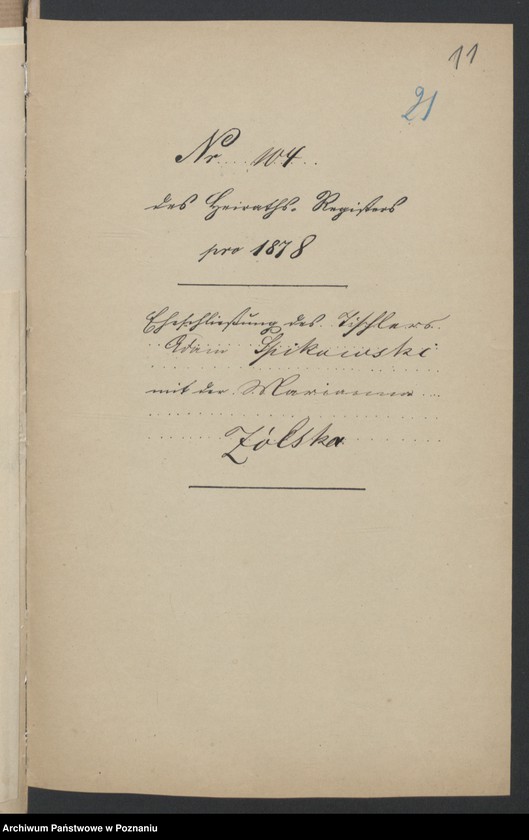 11
21
Nr. 104
des Heiraths-Registers
pro 1878
Eheschließung des Tischlers
Adam Spikowski
mit der Marianna
Zólska
Archiwum Państwowe w Poznaniu